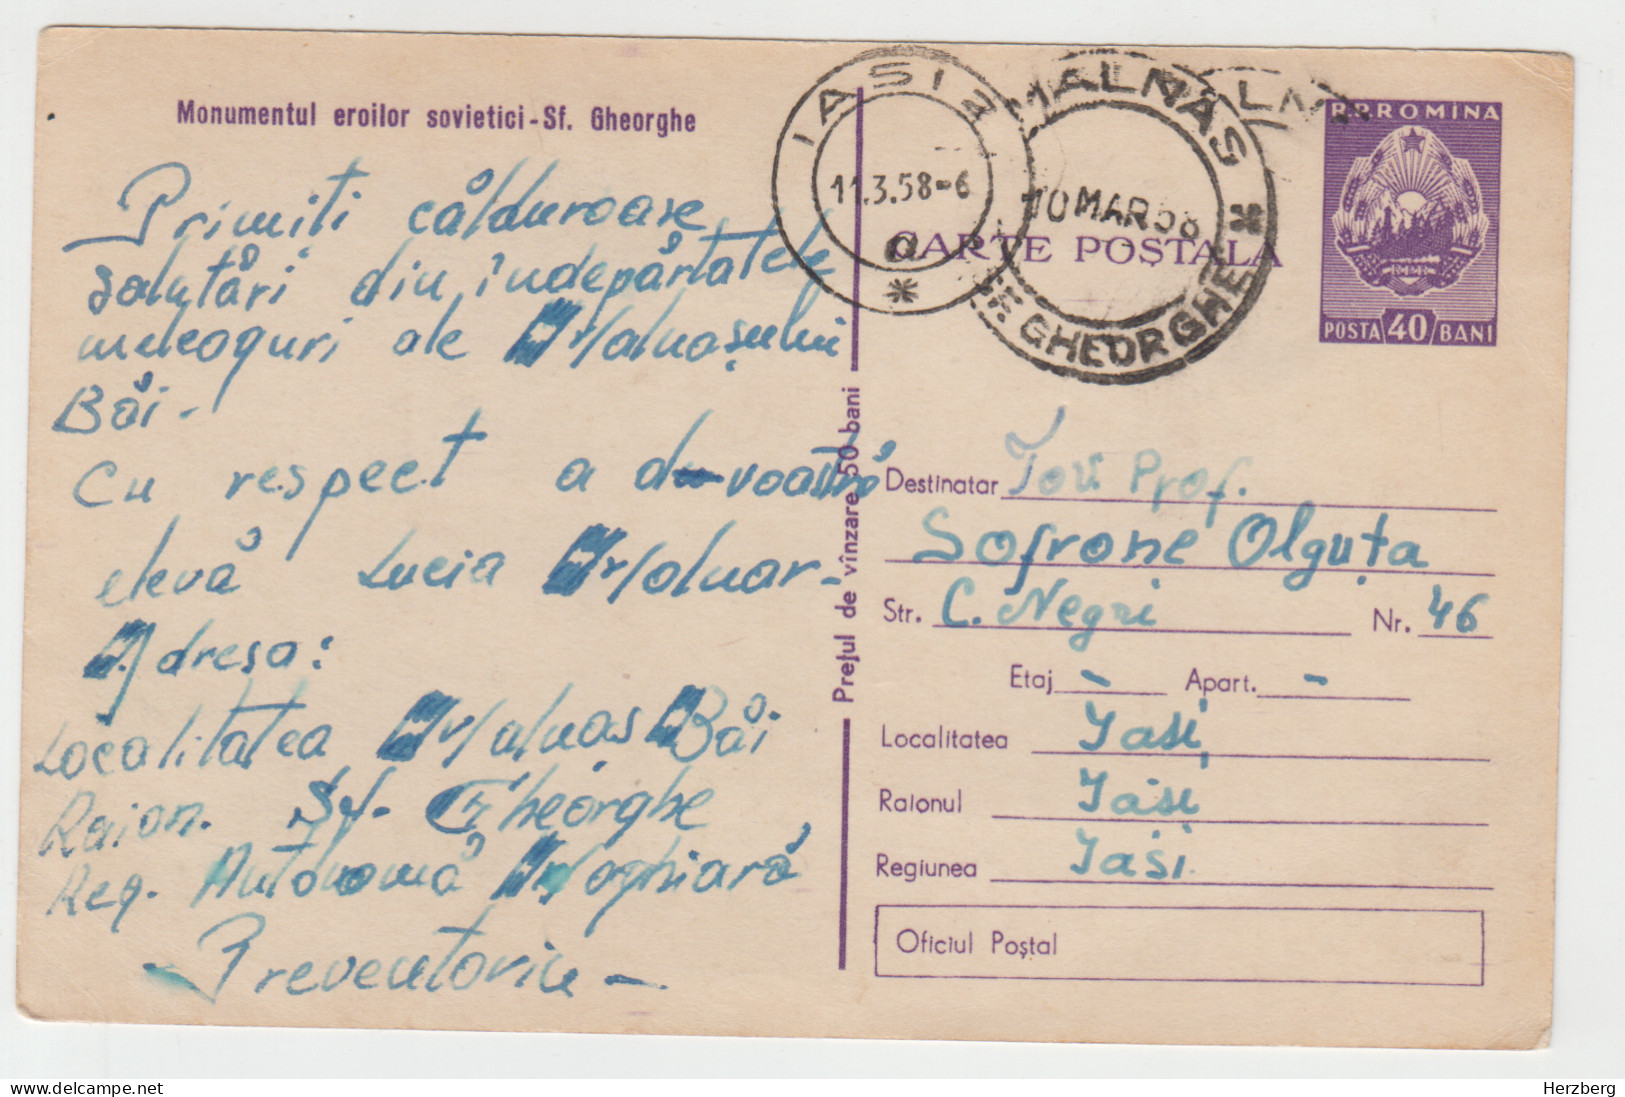 Monumentul eroilor sovietici - Sf. Gheorghe
Primiti călduroase
salutări din îndepărtatele
meleaguri ale Malnașului
Băi.
Cu respect a d-voastră
elevă Lucia
Adresa:
Localitatea Malnas Băi
Raion. Sf. Gheorghe
Reg. Autonomă Maghiară
- Preventoriu -
Prețul de vînzare 50 bani
IASI 2
11.3.58-6
a
MALNAS
10 MAR 58
GHEORGHE
R.P.ROMINA
POSTA 40 BANI
CARTE POȘTALA
Destinatar Tov. Prof.
Sofrone Olguța
Str. C. Negri Nr. 46
Etaj - Apart. -
Localitatea Iasi
Raionul Iasi
Regiunea Iasi
Oficiul Poștal
Herzberg